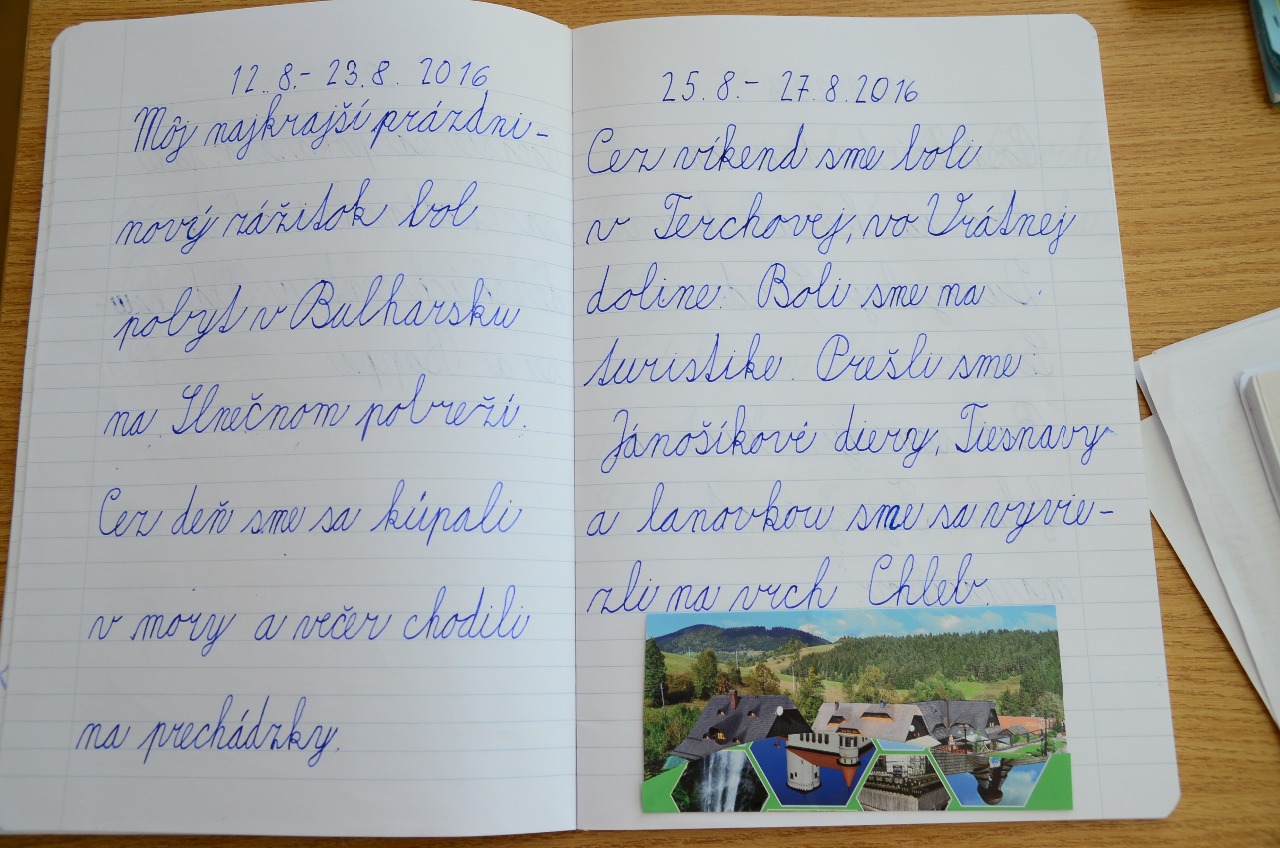 12. 8. - 23. 8. 2016
Môj najkrajší prázdni-
nový zážitok bol
pobyt v Bulharsku
na Slnečnom pobreží.
Cez deň sme sa kúpali
v mory a večer chodili
na prechádzky.
25. 8. - 27. 8. 2016
Cez víkend sme boli
v Terchovej, vo Vrátnej
doline. Boli sme na
turistike. Prešli sme
Jánošíkové diery, Tiesnavy
a lanovkou sme sa vyvie-
zli na vrch Chleb.